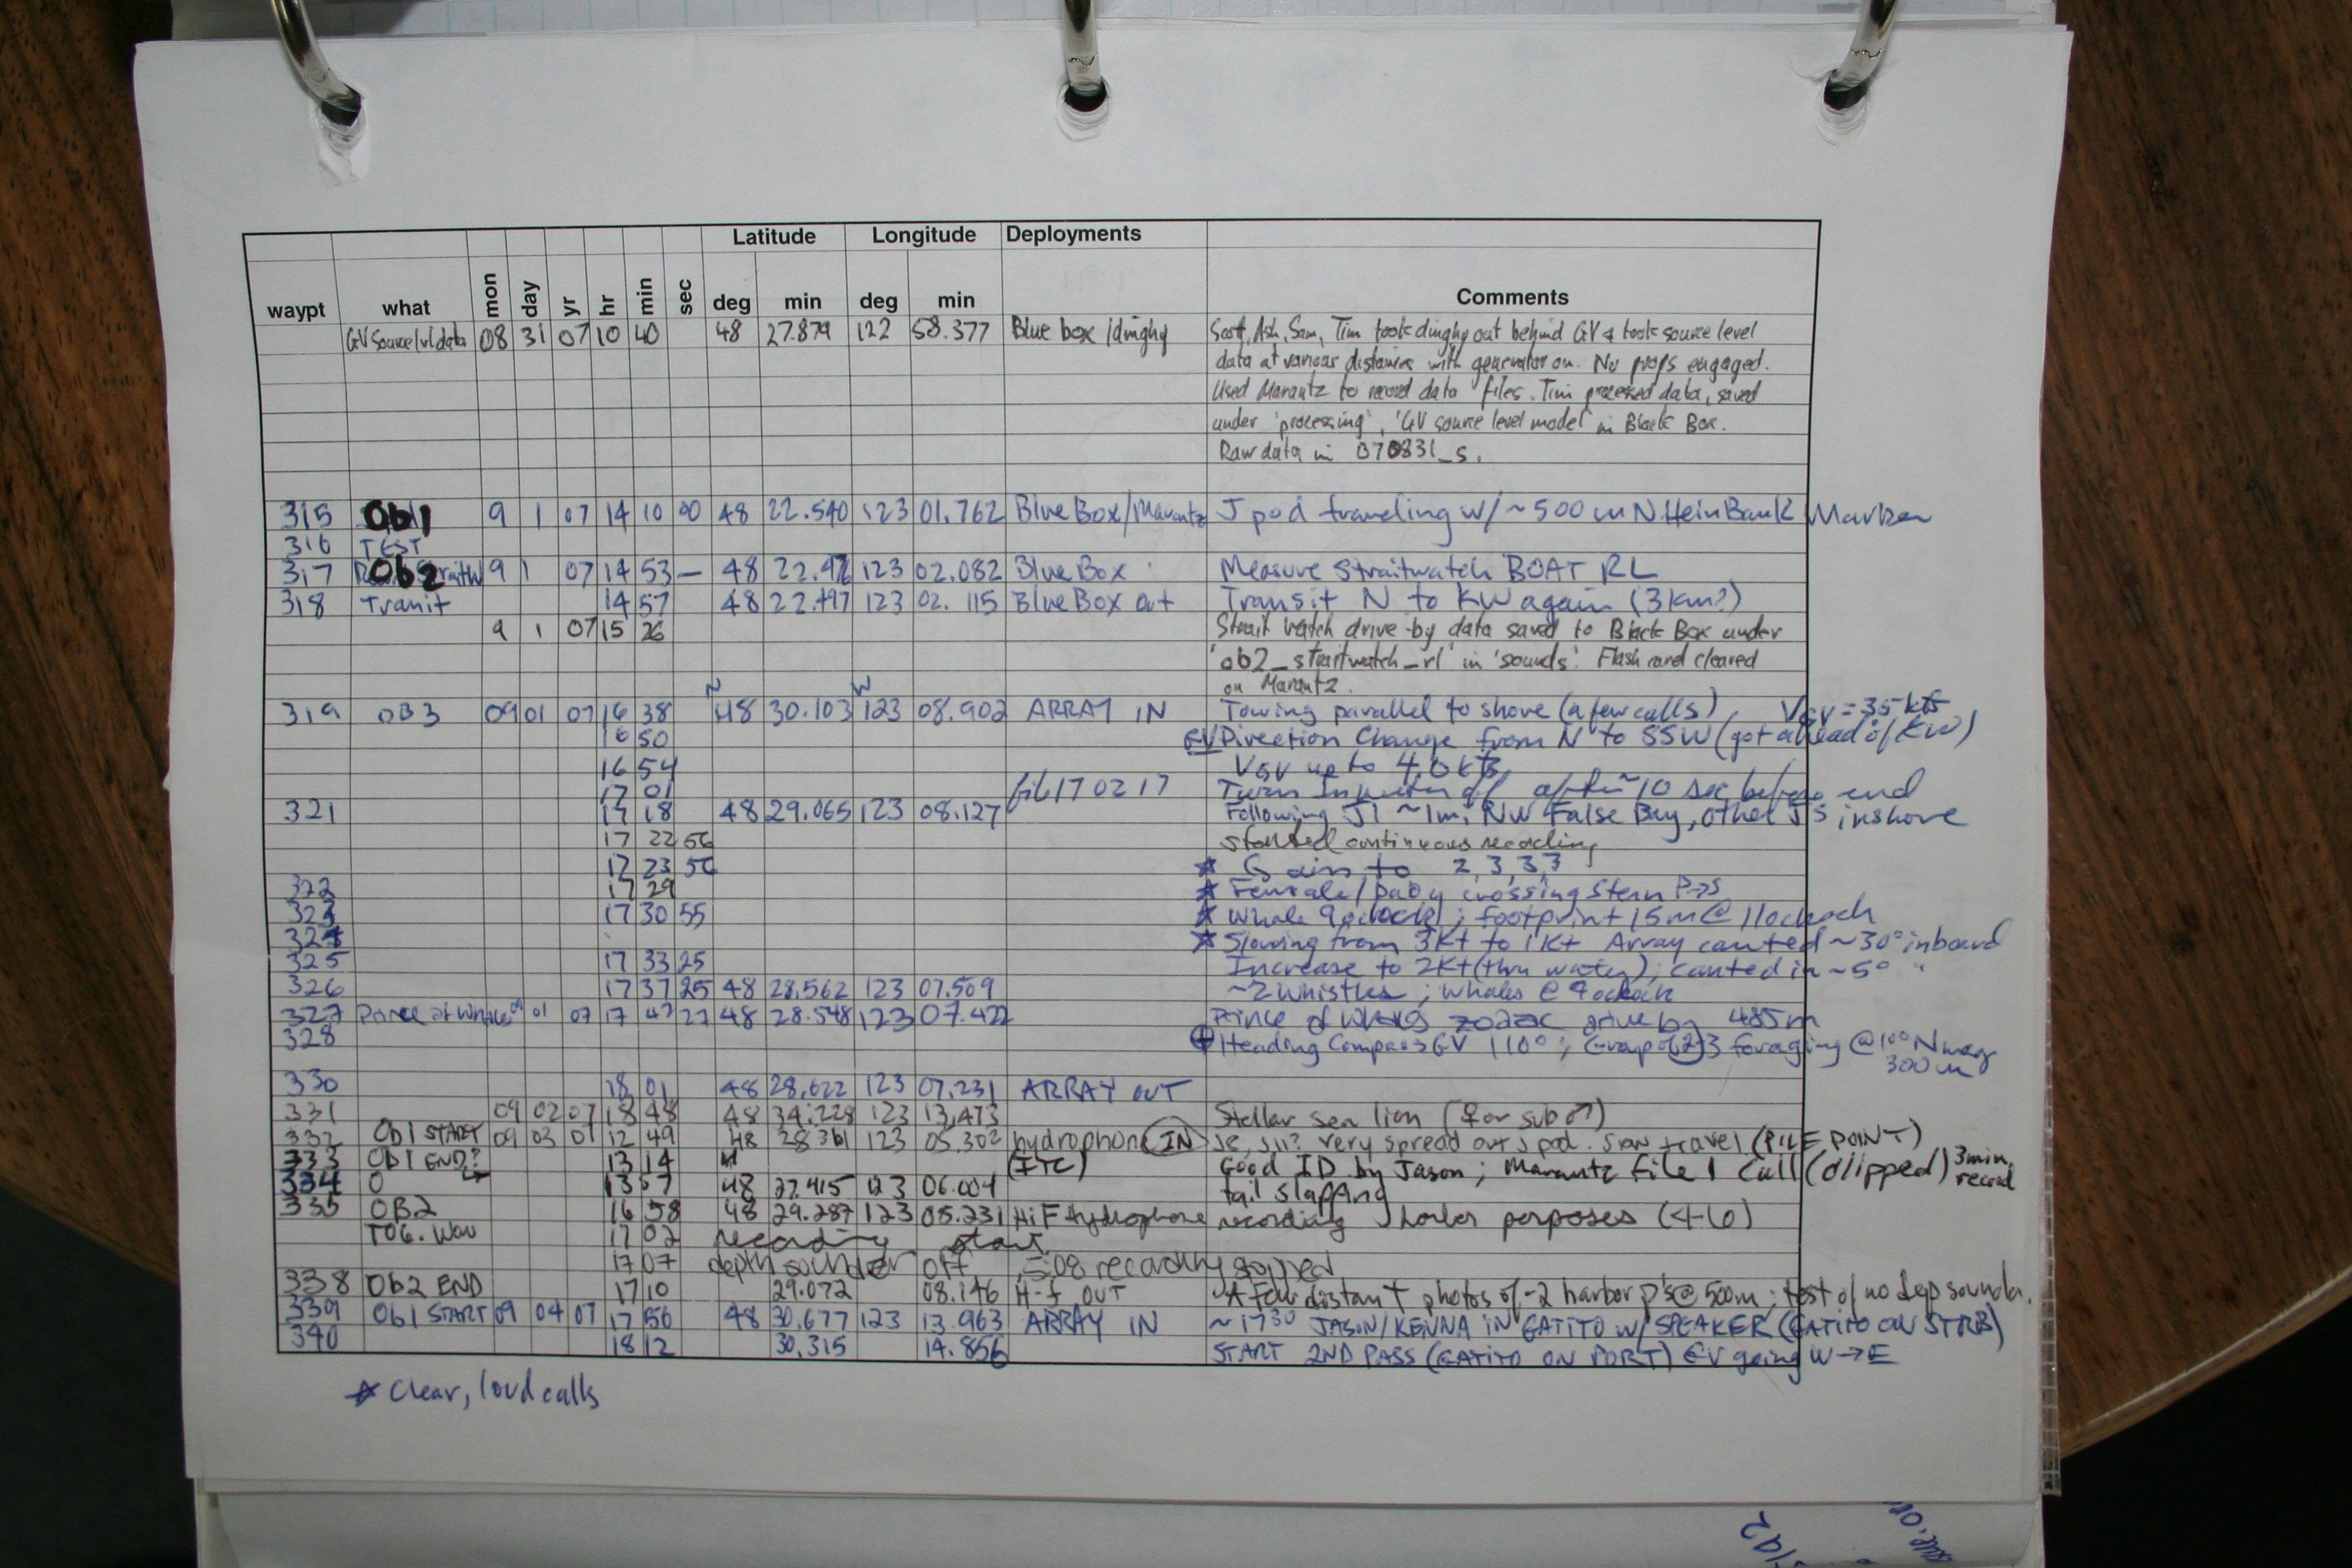 Latitude Longitude Deployments
waypt what mon day yr hr min sec deg min deg min Comments
GV Source lvl data 08 31 07 10 40 48 27.879 122 58.377 Blue box / dinghy Scott, Ash, Sam, Tim took dinghy out behind GV & took source level
data at various distances with generator on. No props engaged.
Used Marantz to record data files. Tim processed data, saved
under 'processing', 'GV source level model' in Black Box.
Raw data in 070831_s.
315 Ob1 9 1 07 14 10 00 48 22.540 123 01.762 Blue Box/Marantz J pod traveling w/ ~500 m N Hein Bank Marker
316 TEST
317 Ob2 9 1 07 14 53 — 48 22.476 123 02.082 Blue Box Measure Straitwatch BOAT RL
318 Transit 14 57 48 22.497 123 02.115 Blue Box out Transit N to KW again (3km?)
9 1 07 15 26 Strait Watch drive-by data saved to Black Box under
'ob2_straitwatch_rl' in 'sounds'. Flash card cleared
on Marantz.
N W
319 OB3 09 01 07 16 38 48 30.103 123 08.902 ARRAY IN Towing parallel to shore (a few calls) VGV = 3.5 kts
16 50 GV Direction Change from N to SSW (got ahead of KW)
16 54 VGV up to 4.0 kts
17 01 170217 Turn off after ~10 sec before end
321 17 18 48 29.065 123 08.127 Following J1 ~1m. NW False Bay, other J's inshore
17 22 56 started continuous recording
17 23 56 ★ Gains to 2,3,3,3
322 17 29 ★ Female/baby crossing stern P→S
323 17 30 55 ★ Whale 9 oclock; footprint 15m @ 11 oclock
324 ★ Slowing from 3kt to 1kt Array canted ~30° inboard
325 17 33 25 Increase to 2kt (thru water); canted in ~5° "
326 17 37 25 48 28.562 123 07.509 ~2 whistles; whales @ 9 oclock
327 Prince of Whales 09 01 07 17 42 27 48 28.548 123 07.422 Prince of Whales zodiac drive by 485m
328 ⊕ Heading Compass GV 110°; Group of 2-3 foraging @ 100° N mag
300 m
330 18 01 48 28.622 123 07.231 ARRAY OUT
331 09 02 07 18 48 48 34.228 123 13.473 Stellar sea lion (♀ or sub ♂)
332 Ob1 START 09 03 07 12 49 48 28.361 123 05.302 hydrophone IN very spread out J pod. Slow travel (PILE POINT)
333 Ob1 END? 13 14 (ITC) Good ID by Jason; Marantz File 1 Call (clipped) 3min record
334 13 57 48 27.415 123 06.004 tail slapping
335 OB2 16 58 48 29.287 123 05.231 HiF Hydrophone recording harbor porpoises (4-6)
T06.wav 17 02 recording start
17 07 depth sounder off 5:08 recording stopped
338 Ob2 END 17 10 29.072 08.146 H-f OUT A few distant photos of ~2 harbor p's @ 500m; test of no dep sounder.
339 Ob1 START 09 04 07 17 56 48 30.677 123 13.963 ARRAY IN ~1730 JASON/KENNA IN GATITO W/ SPEAKER (GATITO ON STRB)
340 18 12 30.315 14.856 START 2ND PASS (GATITO ON PORT) GV going W→E
★ Clear, loud calls